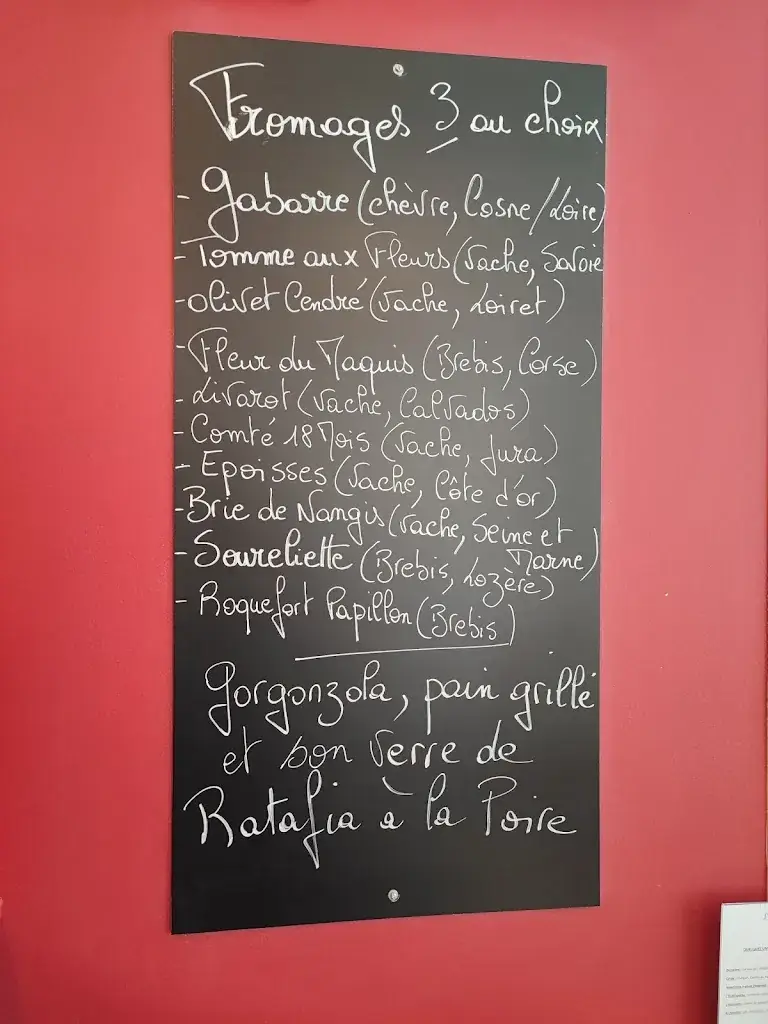 Fromages 3 au choix
- Gabarre (chèvre, Cosne/Loire)
- Tomme aux Fleurs (Vache, Savoie
- Olivet Cendré (Vache, Loiret)
- Fleur du Maquis (Brebis, Corse)
- Livarot (Vache, Calvados)
- Comté 18 Mois (Vache, Jura)
- Epoisses (Vache, Côte d'or)
- Brie de Nangis (Vache, Seine et
Marne)
- Soureliette (Brebis, Lozère)
- Roquefort Papillon (Brebis)
Gorgonzola, pain grillé
et bon verre de
Ratafia à la Poire